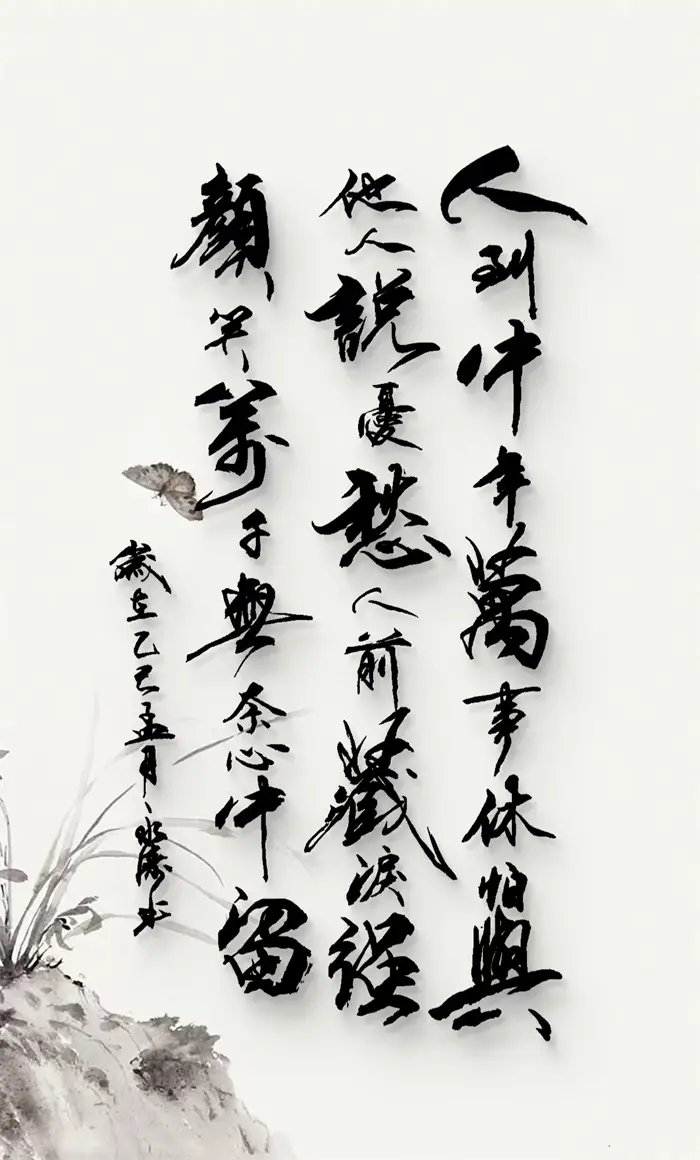 人到中年萬事休怕與
他人説憂愁人前藏淚强
顏笑萬千無奈心中留
歲在乙巳孟月